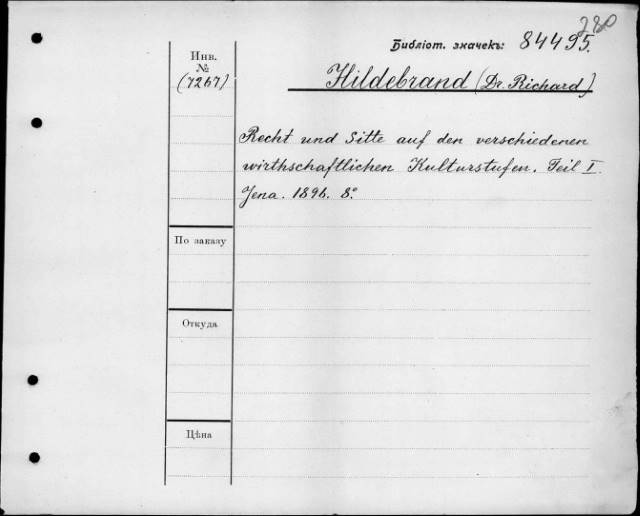 280
Библіот. значекъ: 84495.
Инв.
№
(7267)
Hildebrand (Dr. Richard)
Recht und Sitte auf den verschiedenen
wirthschaftlichen Kulturstufen. Teil I.
Jena. 1896. 8°.
По заказу
Откуда
Цѣна